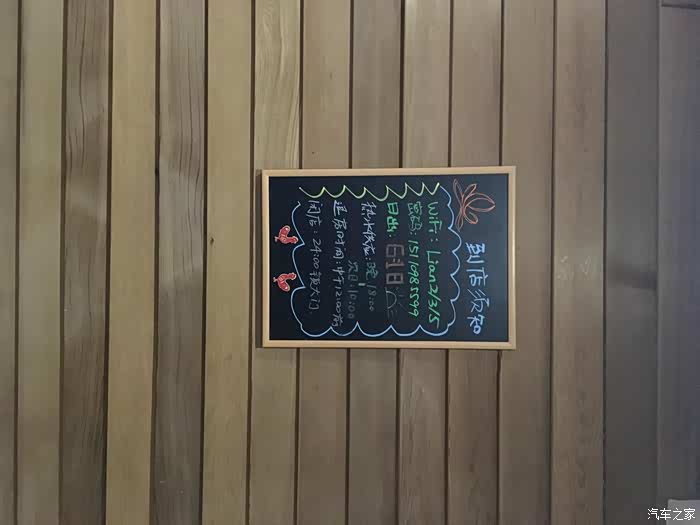 到店须知
WiFi: Lian2/3/5
密码: 15110985599
日出: 6:18
热水供应: 晚 18:00
次日 10:00
退房时间: 中午12:00前
闭店: 24:00锁大门
汽车之家